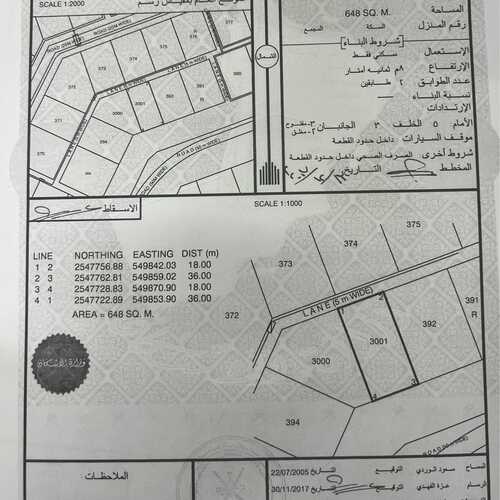 SCALE 1:2000
موقع العام بمقياس رسم
المساحة 648 SQ. M.
رقم المنزل السكة المجمع
شروط البناء
الاستعمال سكني فقط
الارتفاع ٨م ثمانية امتار
عدد الطوابق ٢ طابقين
نسبة البناء
الارتدادات
الأمام ٥ الخلف ٣ الجانبان ٣-مفتوح ٢-مغلق
موقف السيارات داخل حدود القطعة
شروط أخرى الصرف الصحي داخل حدود القطعة
المخطط التاريخ
الشمال
ROAD (20M WIDE)
LANE (5 M WIDE)
ROAD (20M WIDE)
377
373
374
375
371
372
3000
3001
392
391
R
390
394
395
396
376
الاسقاط
SCALE 1:1000
LINE NORTHING EASTING DIST (m)
1 2 2547756.88 549842.03 18.00
2 3 2547762.81 549859.02 36.00
3 4 2547728.83 549870.90 18.00
4 1 2547722.89 549853.90 36.00
AREA = 648 SQ. M.
373
374
375
372
LANE (5 m WIDE)
1
2
3
4
3000
3001
392
391
R
394
وزارة الإسكان
الملاحظات
المساح سعود الوردي التوقيع التاريخ 22/07/2005
الرسام عزة الفهدي التوقيع التاريخ 30/11/2017